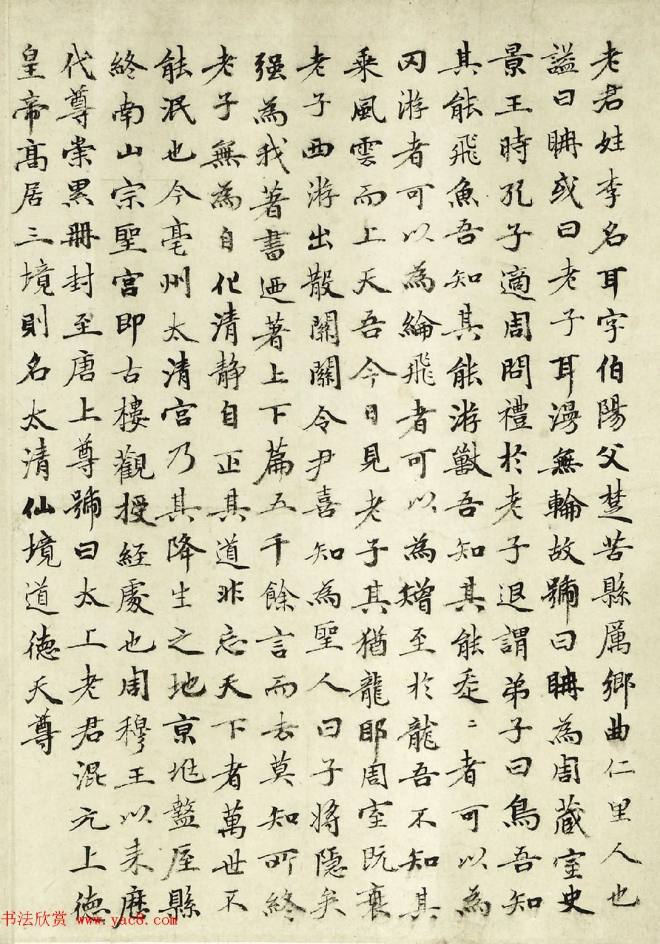 老君姓李名耳字伯陽父楚苦縣厲鄉曲仁里人也
謚曰聃或曰老子耳漫無輪故號曰聃為周藏室史
景王時孔子適周問禮於老子退謂弟子曰鳥吾知
其能飛魚吾知其能游獸吾知其能走〻者可以為
罔游者可以為綸飛者可以為矰至於龍吾不知其
乘風雲而上天吾今日見老子其猶龍耶周室既衰
老子西游出散關關令尹喜知為聖人曰子將隱矣
强為我著書迺著上下篇五千餘言而去莫知所終
老子無為自化清静自正其道非忘天下者萬世不
能泯也今亳州太清宮乃其降生之地京兆盩厔縣
終南山宗聖宮即古樓觀授經處也周穆王以来歷
代尊崇累冊封至唐上尊號曰太上老君混元上德
皇帝髙居三境則名太清仙境道德天尊
书法欣赏 www.yac8.com